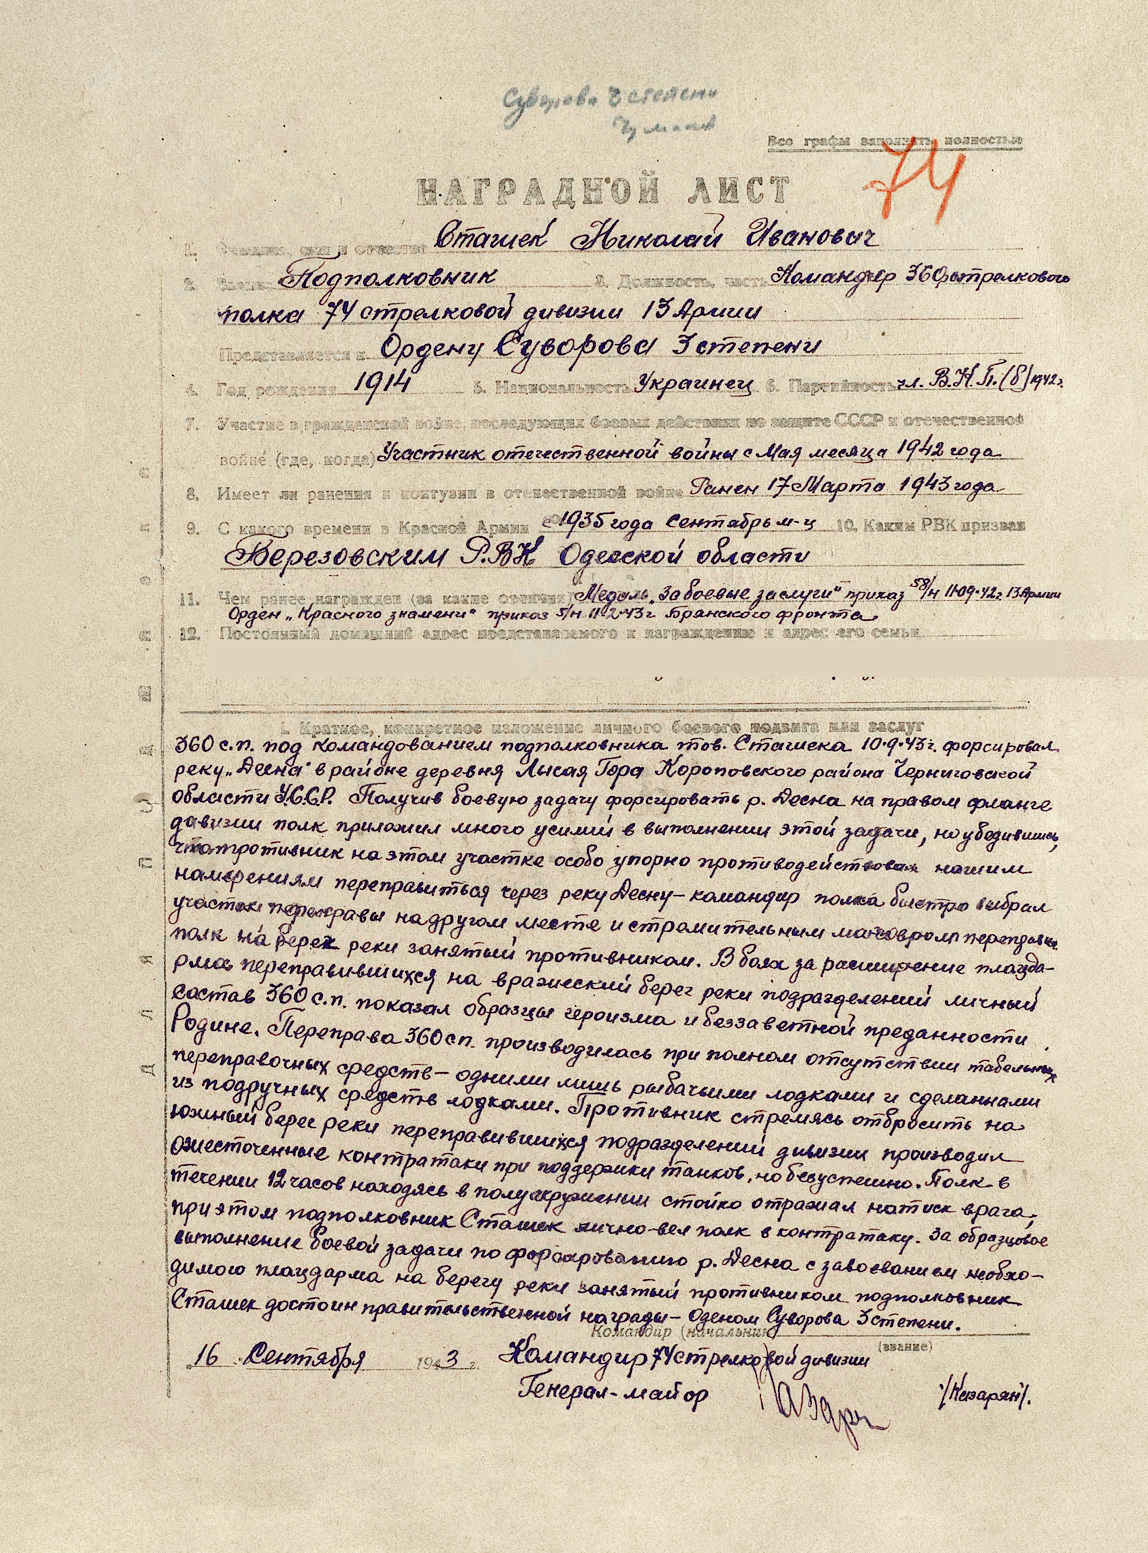 Суворова 3 степени
Все графы заполнять полностью
74
НАГРАДНОЙ ЛИСТ
1. Фамилия, имя и отчество Сташек Николай Иванович
2. Звание Подполковник 3. Должность, часть Командир 360 стрелкового
полка 74 стрелковой дивизии 13 Армии
Представляется к Ордену Суворова 3 степени
4. Год рождения 1914 5. Национальность Украинец 6. Партийность чл. В.К.П.(б) 1942 г.
7. Участие в гражданской войне, последующих боевых действиях по защите СССР и отечественной
войне (где, когда) Участник отечественной войны с Мая месяца 1942 года
8. Имеет ли ранения и контузии в отечественной войне Ранен 17 Марта 1943 года
9. С какого времени в Красной Армии с 1935 года Сентабрь м-ц 10. Каким РВК призван
Березовским Р.В.К Одесской области
11. Чем ранее награжден (за какие отличия) Медаль „За боевые заслуги" приказ №/н 11-09-42 г. 13 Армии
Орден „Красного знамени" приказ №/н 11-2-43 г. Брянского фронта
12. Постоянный домашний адрес представляемого к награждению и адрес его семьи
I. Краткое, конкретное изложение личного боевого подвига или заслуг
360 с.п. под командованием подполковника тов. Сташека 10-9-43 г. форсировал
реку „Десна" в районе деревня Лысая Гора Короповского района Черниговской
области У.С.С.Р. Получив боевую задачу форсировать р. Десна на правом фланге
дивизии полк приложил много усилий в выполнении этой задачи, но убедившись,
что противник на этом участке особо упорно противодействовал нашим
намерениям переправиться через реку Десну – командир полка быстро выбрал
участок переправы на другом месте и стремительным маневром переправил
полк на берег реки занятый противником. В боях за расширение плацда-
рма переправившихся на вражеский берег реки подразделений личный
состав 360 с.п. показал образцы героизма и беззаветной преданности
Родине. Переправа 360 сп. производилась при полном отсутствии табельных
переправочных средств – одними лишь рыбачьими лодками и сделанными
из подручных средств лодками. Противник стремясь отбросить на
южный берег реки переправившихся подразделений дивизии производил
ожесточенные контратаки при поддержки танков, но безуспешно. Полк в
течении 12 часов находясь в полуокружении стойко отражал натиск врага,
при этом подполковник Сташек лично вел полк в контратаку. За образцовое
выполнение боевой задачи по форсированию р. Десна с завоеванием необхо-
димого плацдарма на берегу реки занятый противником подполковник
Сташек достоин правительственной награды – Оденом Суворова 3 степени.
Командир (начальник)
(звание)
16 Сентября 1943 г. Командир 74 стрелковой дивизии
Генерал-майор /Казарян/.
ДЛЯ